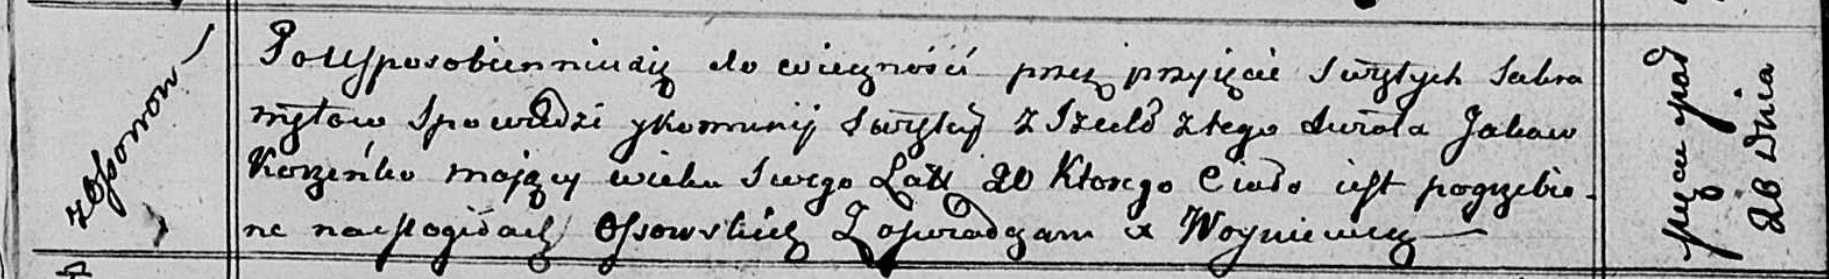 z Ossowow
Po Usposobienniu się do wieczności przez przyięcie Swiętych Sakra
mętow Spowiedzi y komunij Swiętey z Szedł z tego swiata Jakow
Korzeńko mający wieku Swego Latt 20 Ktorego Ciało iest pogrzebio-
ne na Mogiłach Ossowskich Zaswiadczam x Woyniewicz
26 Dnia